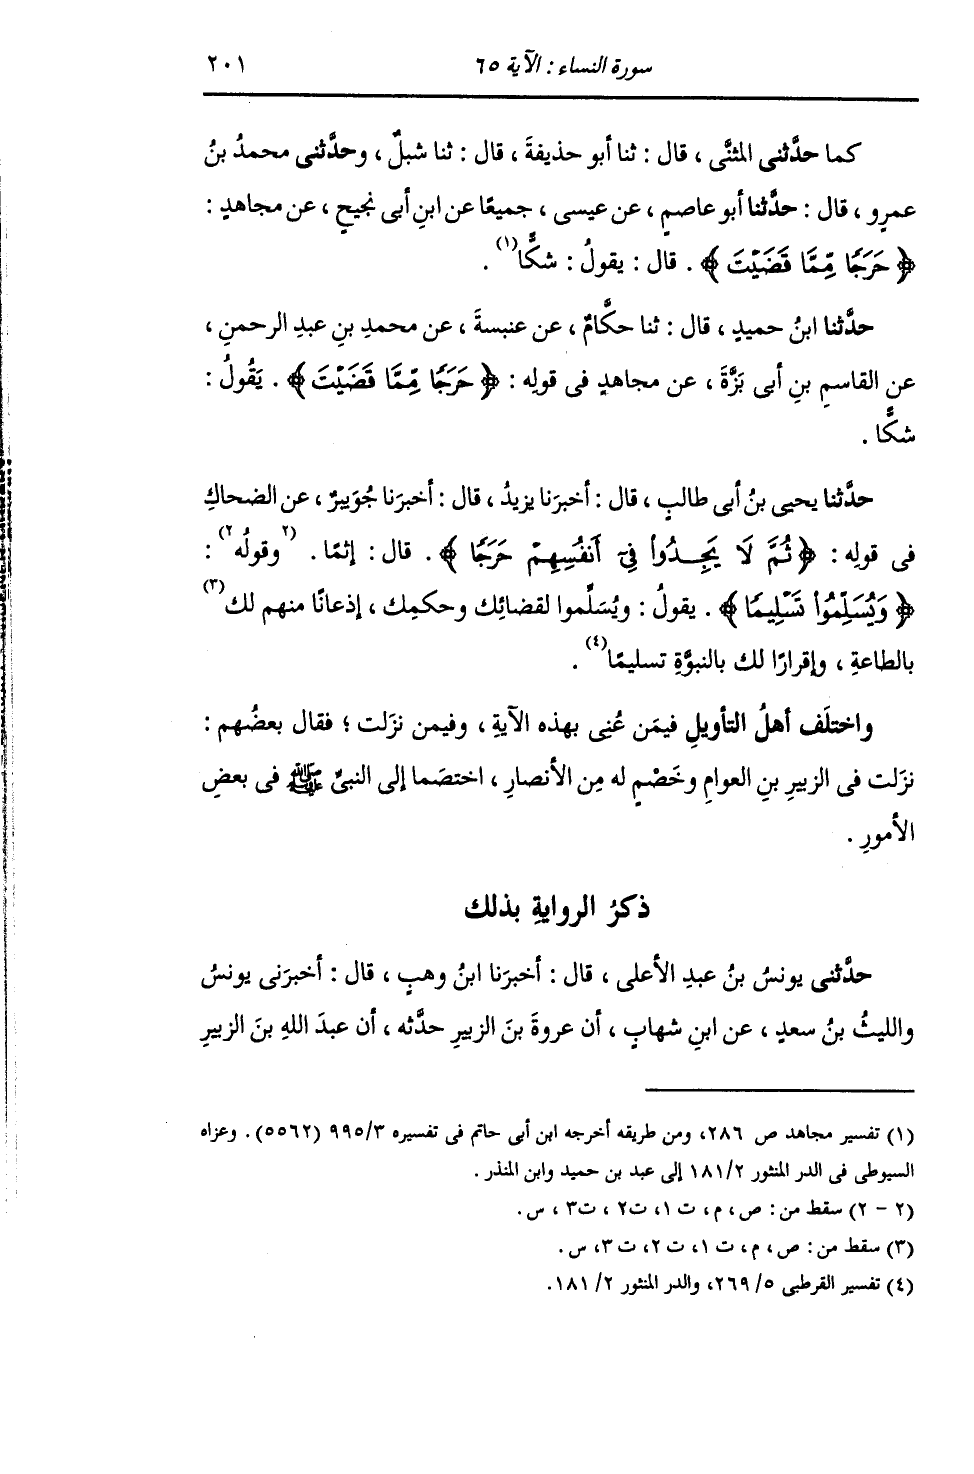 سورة النساء : الآية ٦٥ ٢٠١
كما حدَّثنى المثنَّى ، قال : ثنا أبو حذيفةَ ، قال : ثنا شبلٌ ، وحدَّثنى محمدُ بنُ
عمرٍو ، قال : حدَّثنا أبو عاصمٍ ، عن عيسى ، جميعًا عن ابنِ أبى نجيحٍ ، عن مجاهدٍ :
﴿ حَرَجًا مِّمَّا قَضَيْتَ ﴾ . قال : يقولُ : شكًّا(١) .
حدَّثنا ابنُ حميدٍ ، قال : ثنا حكَّامٌ ، عن عنبسةَ ، عن محمدِ بنِ عبدِ الرحمنِ ،
عن القاسمِ بنِ أبى بَزَّةَ ، عن مجاهدٍ فى قولِه : ﴿ حَرَجًا مِّمَّا قَضَيْتَ ﴾ . يَقُولُ :
شكًّا .
حدَّثنا يحيى بنُ أبى طالبٍ ، قال : أخبرَنا يزيدُ ، قال : أخبرَنا جُوَيبرٌ ، عن الضحاكِ
فى قولِه : ﴿ ثُمَّ لَا يَجِدُوا۟ فِىٓ أَنفُسِهِمْ حَرَجًا ﴾ . قال : إثمًا . (٢وقولُه٢) :
﴿ وَيُسَلِّمُوا۟ تَسْلِيمًا ﴾ . يقولُ : ويُسَلِّموا لقضائِك وحكمِك ، إذعانًا منهم لك(٣)
بالطاعةِ ، وإقرارًا لك بالنبوَّةِ تسليمًا(٤) .
واختلَف أهلُ التأويلِ فيمَن عُنِى بهذه الآيةِ ، وفيمن نزَلت ؛ فقال بعضُهم :
نزَلت فى الزبيرِ بنِ العوامِ وخَصْمٍ له مِن الأنصارِ ، اختصَما إلى النبىِّ ﷺ فى بعضِ
الأمورِ .
ذكرُ الروايةِ بذلك
حدَّثنى يونسُ بنُ عبدِ الأعلى ، قال : أخبرَنا ابنُ وهبٍ ، قال : أخبرَنى يونسُ
والليثُ بنُ سعدٍ ، عن ابنِ شهابٍ ، أن عروةَ بنَ الزبيرِ حدَّثه ، أن عبدَ اللهِ بنَ الزبيرِ
(١) تفسير مجاهد ص ٢٨٦، ومن طريقه أخرجه ابن أبى حاتم فى تفسيره ٩٩٥/٣ (٥٥٦٢) . وعزاه
السيوطى فى الدر المنثور ١٨١/٢ إلى عبد بن حميد وابن المنذر .
(٢ - ٢) سقط من : ص ، م ، ت ١، ت٢ ، ت٣ ، س .
(٣) سقط من : ص ، م ، ت ١، ت ٢، ت ٣، س .
(٤) تفسير القرطبى ٢٦٩/٥، والدر المنثور ١٨١/٢.